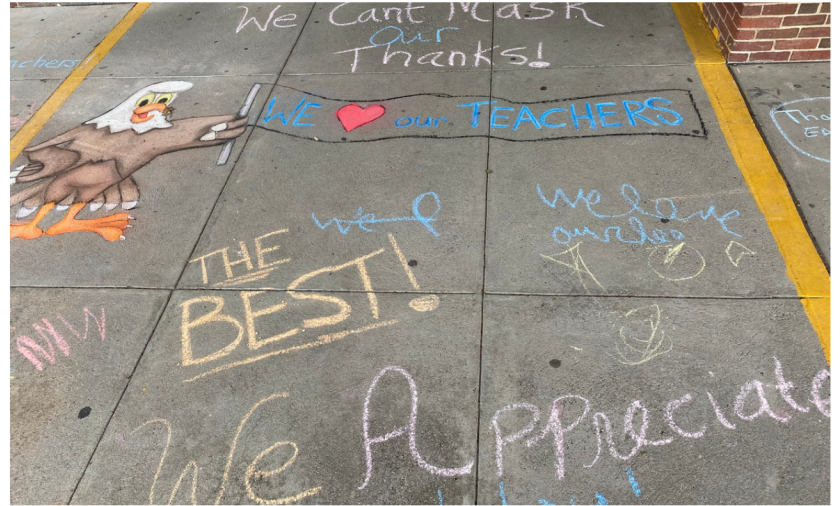 We Cant Mask
our
Thanks!
achers
WE our TEACHERS
We love
THE
BEST!
We Appreciate